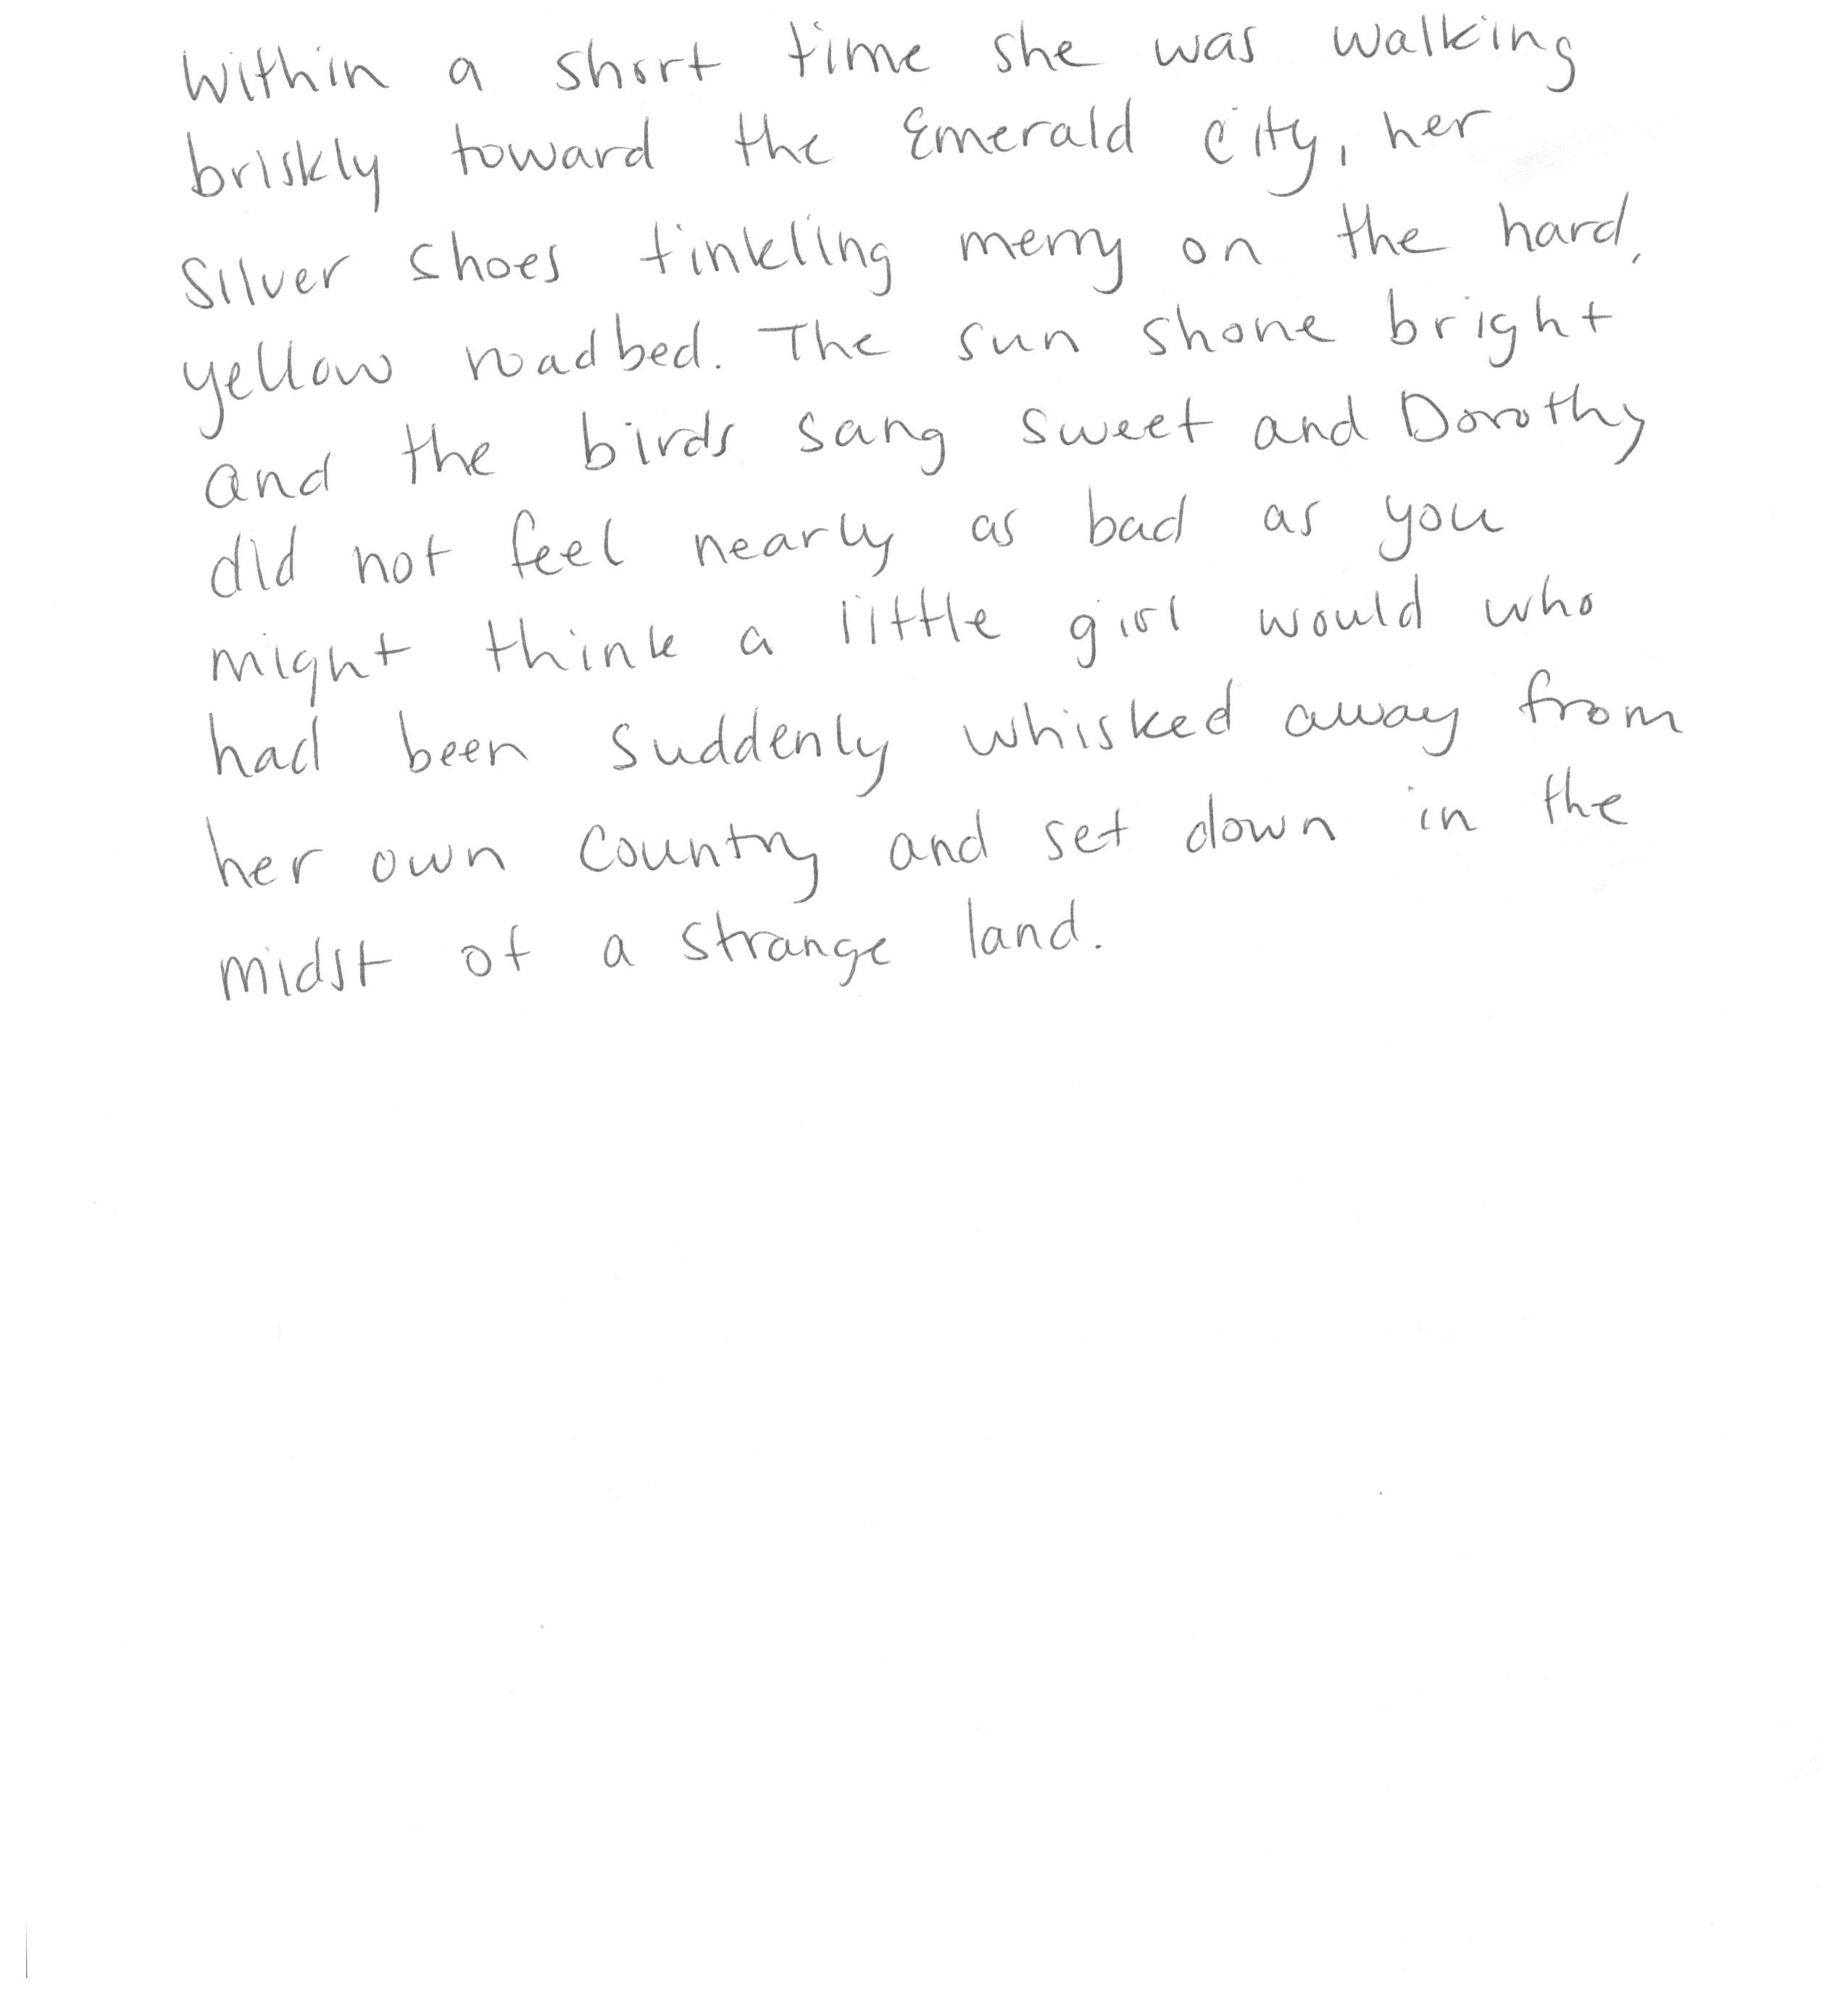 Within a short time she was walking
briskly toward the Emerald City, her
Silver shoes tinkling merry on the hard,
yellow roadbed. The sun shone bright
and the birds sang sweet and Dorothy
did not feel nearly as bad as you
might think a little girl would who
had been suddenly whisked away from
her own country and set down in the
midst of a strange land.